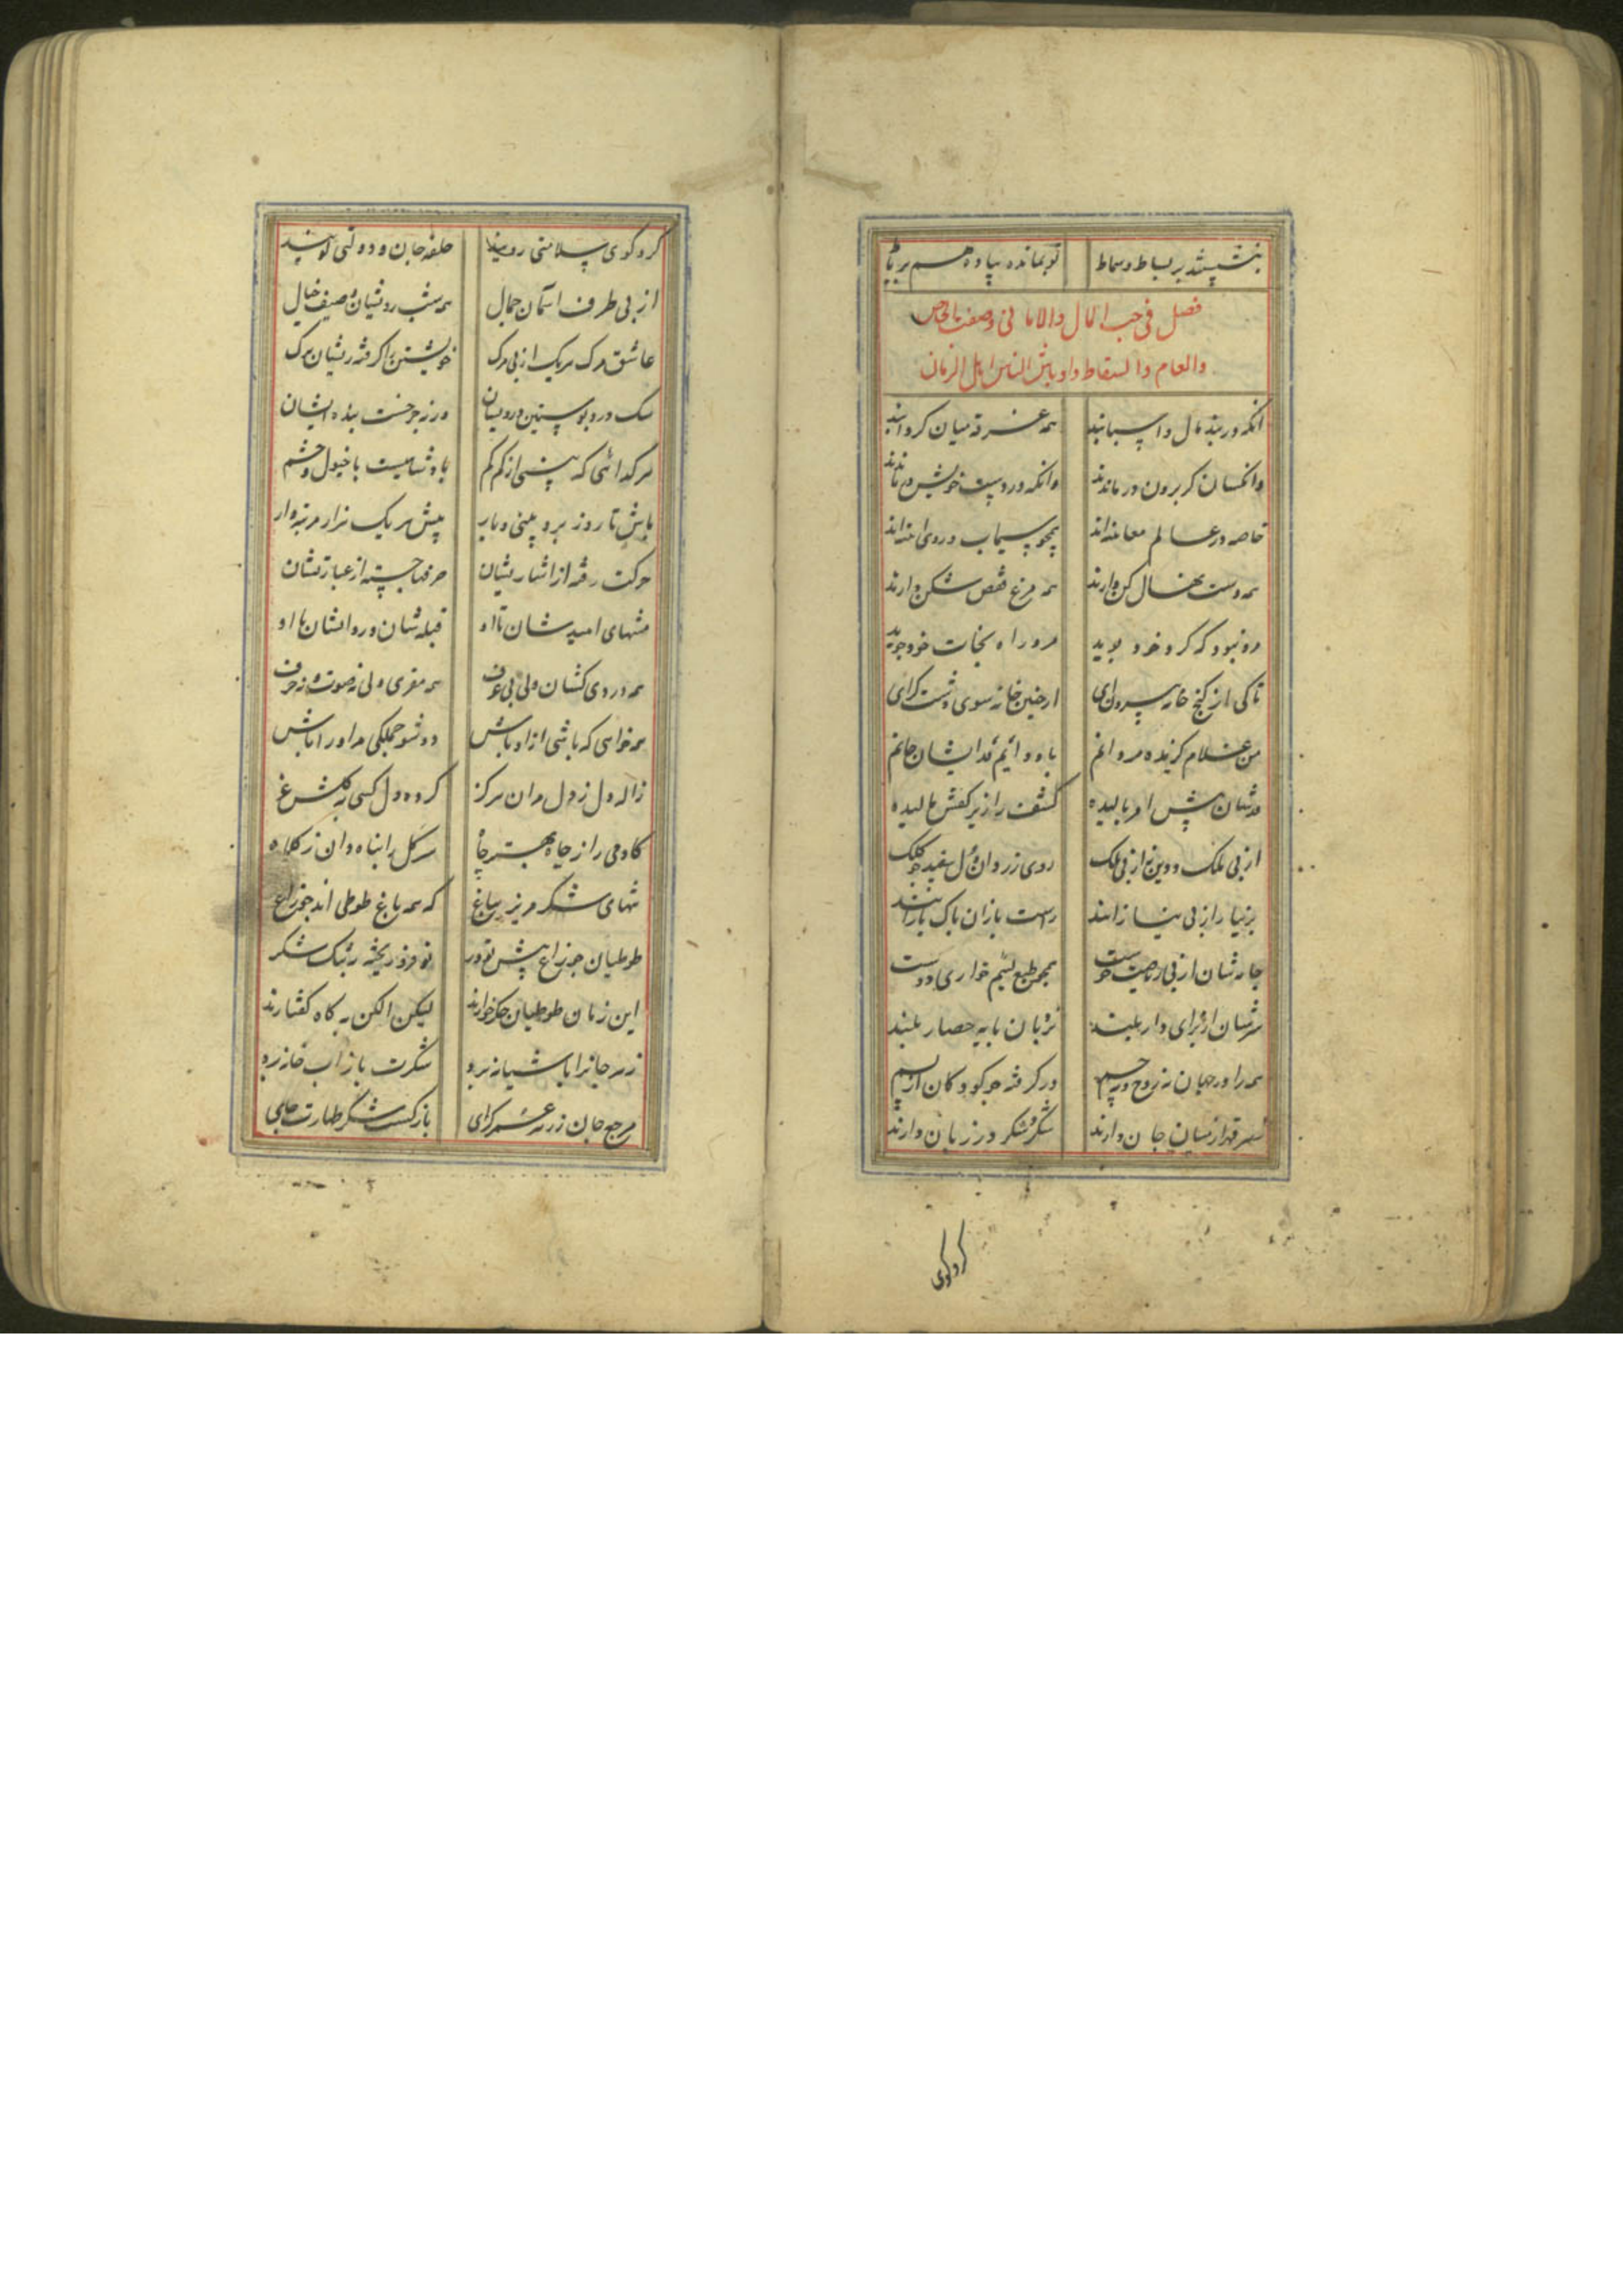 بنشستند بر بساط و سماط تو بمانده پیاده هم بر باط
فصل فی حب المال والامانی وصفت الخاص
والعام والسقاط واوباش الناس اهل الزمان
انکه در بند مال و اسبابند همه غرقه میان کردابند
وانکسان کز برون در ماندند وانکه در دست خویش در ماندند
خاصه در عالم معاینه‌اند همچو سیماب در روی
همه دست نهال کن دارند همه مرغ قفص شکن دارند
ره نبود که کرد خود بوید مرد راه نجات خود جوید
تا کی از کنج خانه بیرون ای از چنین خانه سوی دشت کرای
من غلام کزیده مردانم باد دایم فدا یشان جانم
قدشان پیش امر بالیده کشف را زیر کفش مالیده
از پی ملک و دین نه از پی ملک روی زرد و سفید چو کلک
بی نیاز از پی نیازانند راست بازان پاک بازانند
جامه شان از پی همچو طبع لئیم خواری دوست
سرشان از برای دار بلند نردبان پایه حصار بلند
همه را در جهان نه روح و نه جسم در کرفته چو کودکان از اسم
از میان جان دارند شکر و شکر در زبان دارند
کرد کوی
کرد کوی سلامتی روینده حلقه جان و دوستی
از پی طرف آسمان جمال همه شب رویشان وصیف خیال
عاشق مرک هریک از پی مرک خویشتن را کرفته ریشان برک
سک درد پوستین درویشان ورنه چرخست بنده ایشان
هر کدائی که بینی از کم کم پادشاهیست با خیول و حشم
باش تا روز برد بینی و بار پیش هریک هزار مرتبه دار
حرکت رفته از اشارتشان حرفها جسته از عبارتشان
منتهای امیدشان تا او قبله شان در روانشان با او
همه دردی کشان ولی بی ظرف همه مقری ولی نه صوت و نه حرف
همه خواهی که باشی از او باش رو بشو جملکی مر او را باش
زاله دل ز دل مدان هرکز کرده دل کسی به
کاه می را ز چاه بهتر جاه سر کل را پناه دان ز کلاه
تنهای شکر مریز بباغ که همه باغ طوطی اند چو زاغ
طوطیان چو زاغ پیش تو در تو فرو ریخته به تنک شکر
این زمان طوطیان جکر خوارند لیکن الکن به کاه کفتارند
زمه جانرا باشیانه برد شکرت باز آب خانه برد
مرجع جان زمه عشر کرای بازکشت شکر طهارت جای